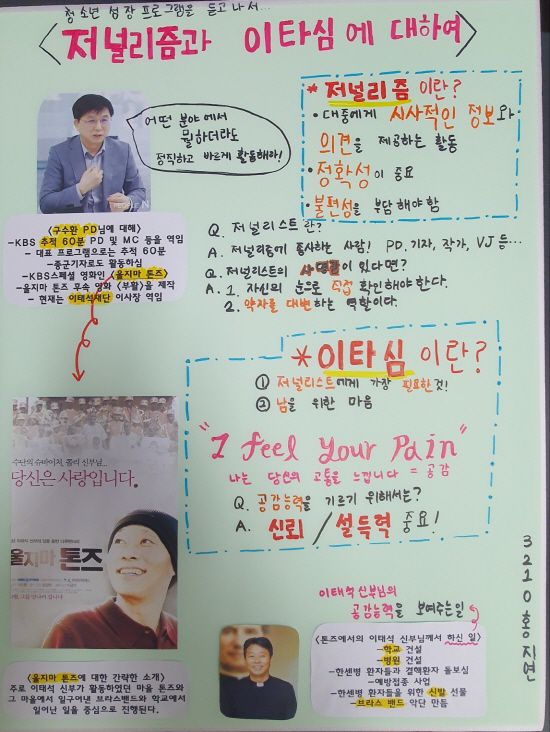 청소년 성장 프로그램을 듣고나서...
<저널리즘과 이타심에 대하여>
어떤 분야에서
뭘하더라도
정직하고 바르게 활동해라!
PEOPLE N
<구수환 PD님에 대해>
-KBS 추적 60분 PD 및 MC 등을 역임
- 대표 프로그램으로는 추적 60분
-종군기자로도 활동하심
-KBS스페셜 영화인 <울지마 톤즈>
-울지마 톤즈 후속 영화 <부활>을 제작
- 현재는 이태석재단 이사장 역임
* 저널리즘 이란?
• 대중에게 시사적인 정보와
의견을 제공하는 활동
• 정확성이 중요
• 불편성을 부담해야함
Q. 저널리스트란?
A. 저널리즘에 종사하는 사람! PD, 기자, 작가, VJ 등…
Q. 저널리스트의 사명감이 있다면?
A. 1. 자신의 눈으로 직접 확인해야한다.
2. 약자를 대변하는 역할이다.
* 이타심 이란?
① 저널리스트에게 가장 필요한것!
② 남을 위한 마음
"I feel Your Pain"
나는 당신의 고통을 느낍니다 = 공감
Q. 공감능력을 기르기 위해서는?
A. 신뢰 / 설득력 중요!
수단의 슈바이처, 쫄리 신부님...
당신은 사랑입니다.
울지마 톤즈
<울지마 톤즈>에 대한 간략한 소개>
주로 이태석 신부가 활동하였던 마을 톤즈와
그 마을에서 일구어낸 브라스밴드와 학교에서
일어난 일을 중심으로 진행된다.
이태석 신부님의
공감능력을 보여주는일
<톤즈에서의 이태석 신부님께서 하신 일>
-학교 건설
-병원 건설
-한센병 환자들과 결핵환자 돌보심
-예방접종 사업
-한센병 환자들을 위한 신발 선물
-브라스 밴드 악단 만듦
3210 홍지연